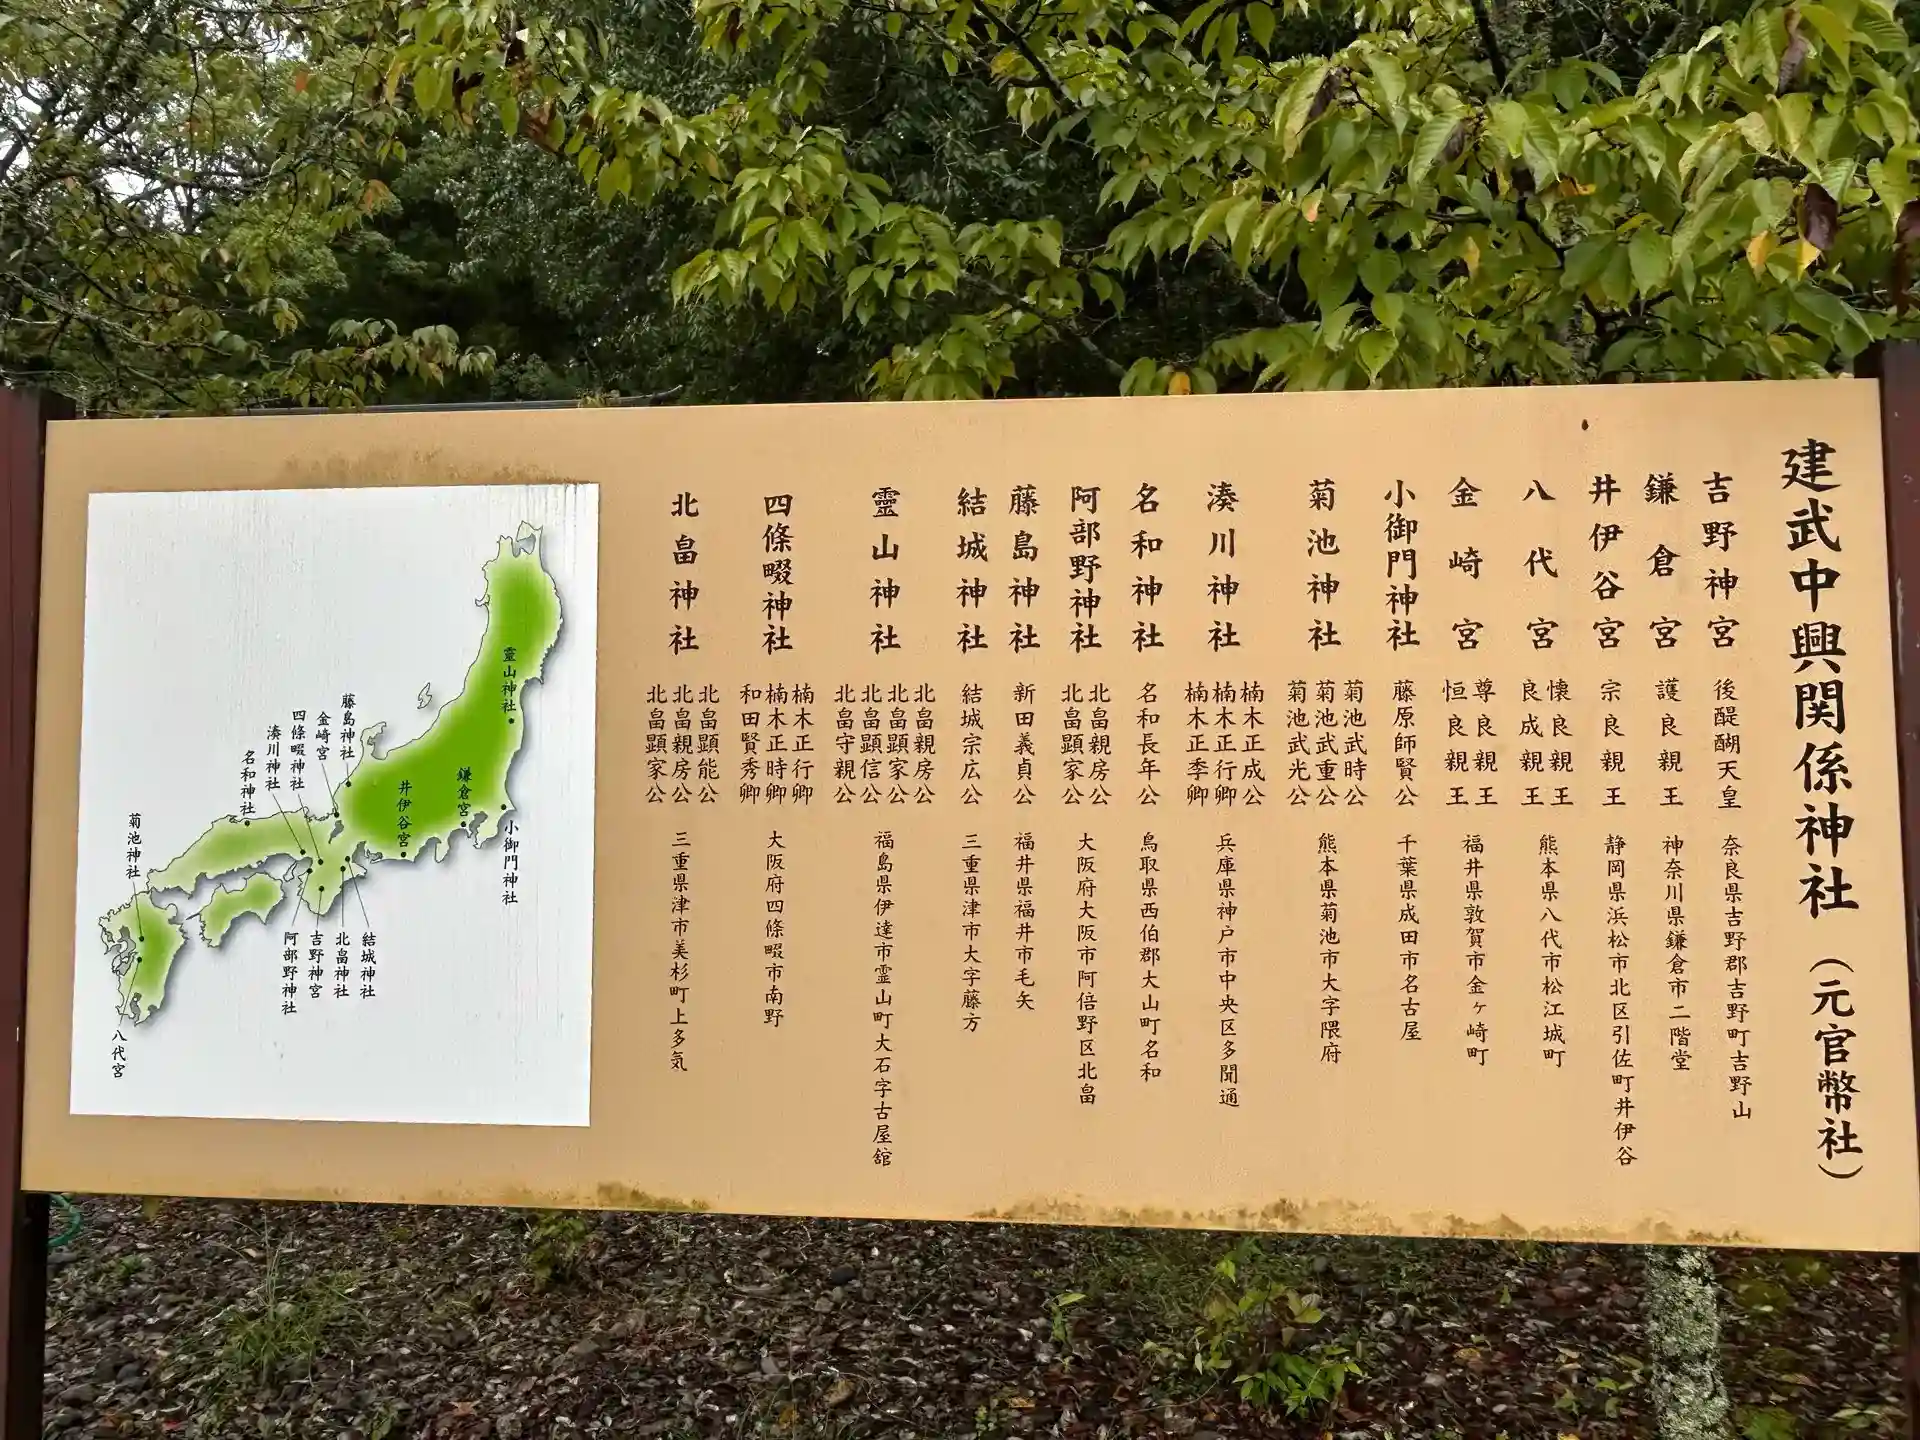 建武中興関係神社（元官幣社）
吉野神宮 後醍醐天皇 奈良県吉野郡吉野町吉野山
鎌倉宮 護良親王 神奈川県鎌倉市二階堂
井伊谷宮 宗良親王 静岡県浜松市北区引佐町井伊谷
八代宮 懐良親王 良成親王 熊本県八代市松江城町
金崎宮 尊良親王 恒良親王 福井県敦賀市金ヶ崎町
小御門神社 藤原師賢公 千葉県成田市名古屋
菊池神社 菊池武時公 菊池武重公 菊池武光公 熊本県菊池市大字隈府
湊川神社 楠木正成公 楠木正行卿 楠木正季卿 兵庫県神戸市中央区多聞通
名和神社 名和長年公 鳥取県西伯郡大山町名和
阿部野神社 北畠親房公 北畠顕家公 大阪府大阪市阿倍野区北畠
藤島神社 新田義貞公 福井県福井市毛矢
結城神社 結城宗広公 三重県津市大字藤方
霊山神社 北畠親房公 北畠顕家公 北畠顕信公 北畠守親公 福島県伊達市霊山町大石字古屋舘
四條畷神社 楠木正行卿 楠木正時卿 和田賢秀卿 大阪府四條畷市南野
北畠神社 北畠顕能公 北畠親房公 北畠顕家公 三重県津市美杉町上多気
霊山神社
小御門神社
鎌倉宮
井伊谷宮
藤島神社
金崎宮
四條畷神社
湊川神社
名和神社
結城神社
北畠神社
吉野神宮
阿部野神社
菊池神社
八代宮